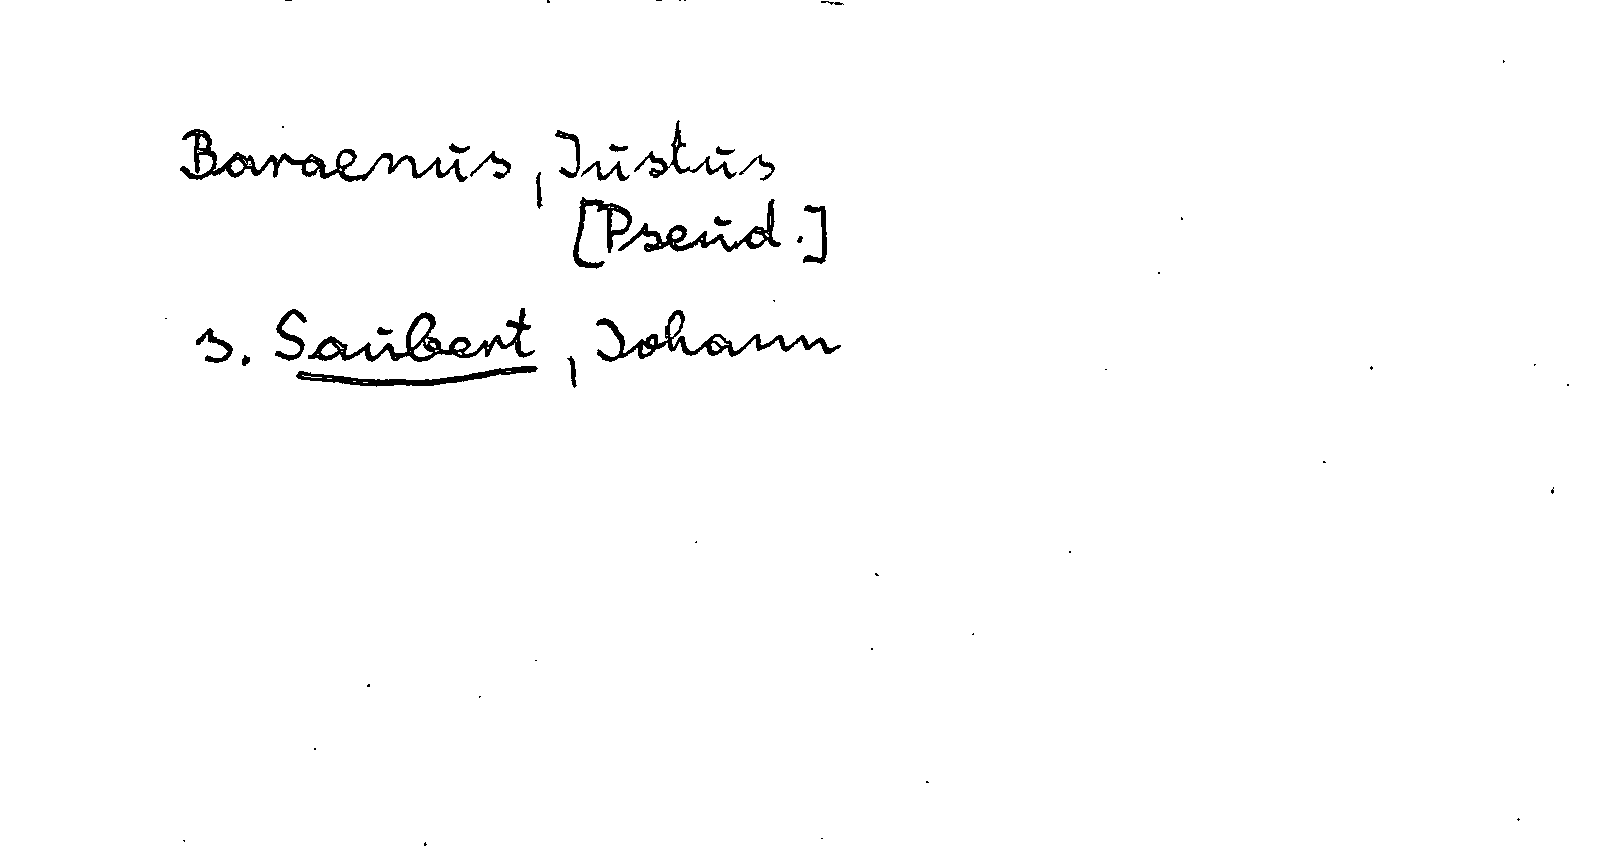 Baraenus, Iustus
[Pseud.]
s. Saubert, Johann